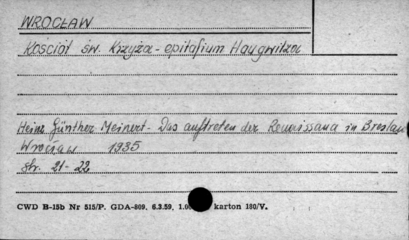 WROCŁAW
Kościół św. Krzyża - epitafium Haugwitza
Heinz Günther Meinert - Das auftreten der Renaissance in Breslau
Wrocław 1935
str. 21-22
CWD B-15b Nr 515/P. GDA-809. 6.3.59, karton 180/V.